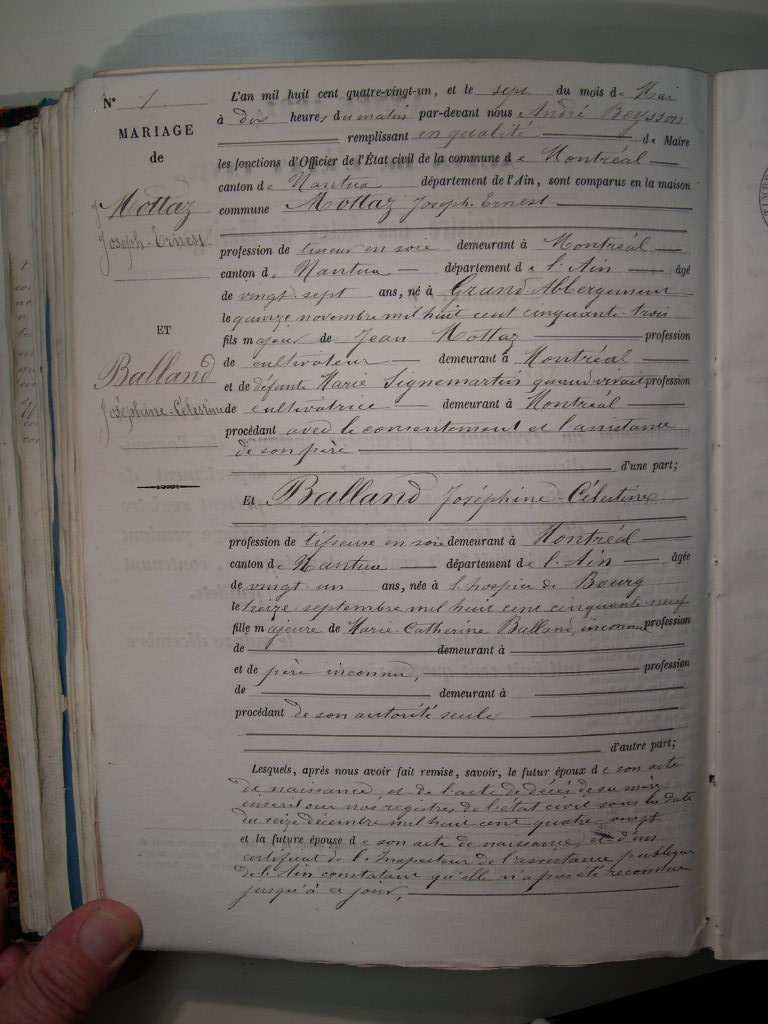 N° 1
MARIAGE
de
Mottaz
Joseph-Ernest
ET
Balland
Joséphine-Célestine
L'an mil huit cent quatre-vingt-un, et le sept du mois de Mai
à dix heures du matin par-devant nous André Beysson
remplissant en qualité de Maire
les fonctions d'Officier de l'État civil de la commune de Montréal
canton de Nantua département de l'Ain, sont comparus en la maison
commune Mottaz Joseph-Ernest
profession de tisseur en soie demeurant à Montréal
canton de Nantua département de l'Ain âgé
de vingt-sept ans, né à Grand-Abergement
le quinze novembre mil huit cent cinquante-trois
fils majeur de Jean Mottaz profession
de cultivateur demeurant à Montréal
et de défunte Marie Signemartin quand vivait profession
de cultivatrice demeurant à Montréal
procédant avec le consentement et l'assistance
de son père
d'une part;
Et Balland Joséphine-Célestine
profession de tisseuse en soie demeurant à Montréal
canton de Nantua département de l'Ain âgée
de vingt un ans, née à l'hospice de Bourg
le treize septembre mil huit cent cinquante neuf
fille majeure de Marie-Catherine Balland, inconnue profession
de demeurant à
et de père inconnu, profession
de demeurant à
procédant de son autorité seule
d'autre part;
Lesquels, après nous avoir fait remise, savoir, le futur époux de son acte
de naissance, et de l'acte de décès de sa mère
inscrit sur nos registres de l'état civil sous la date
du seize décembre mil huit cent quatre-vingt
et la future épouse de son acte de naissance, et d'un
certificat de l'Inspecteur de l'assistance publique
de l'Ain constatant qu'elle n'a pas été reconnue
jusqu'à ce jour,